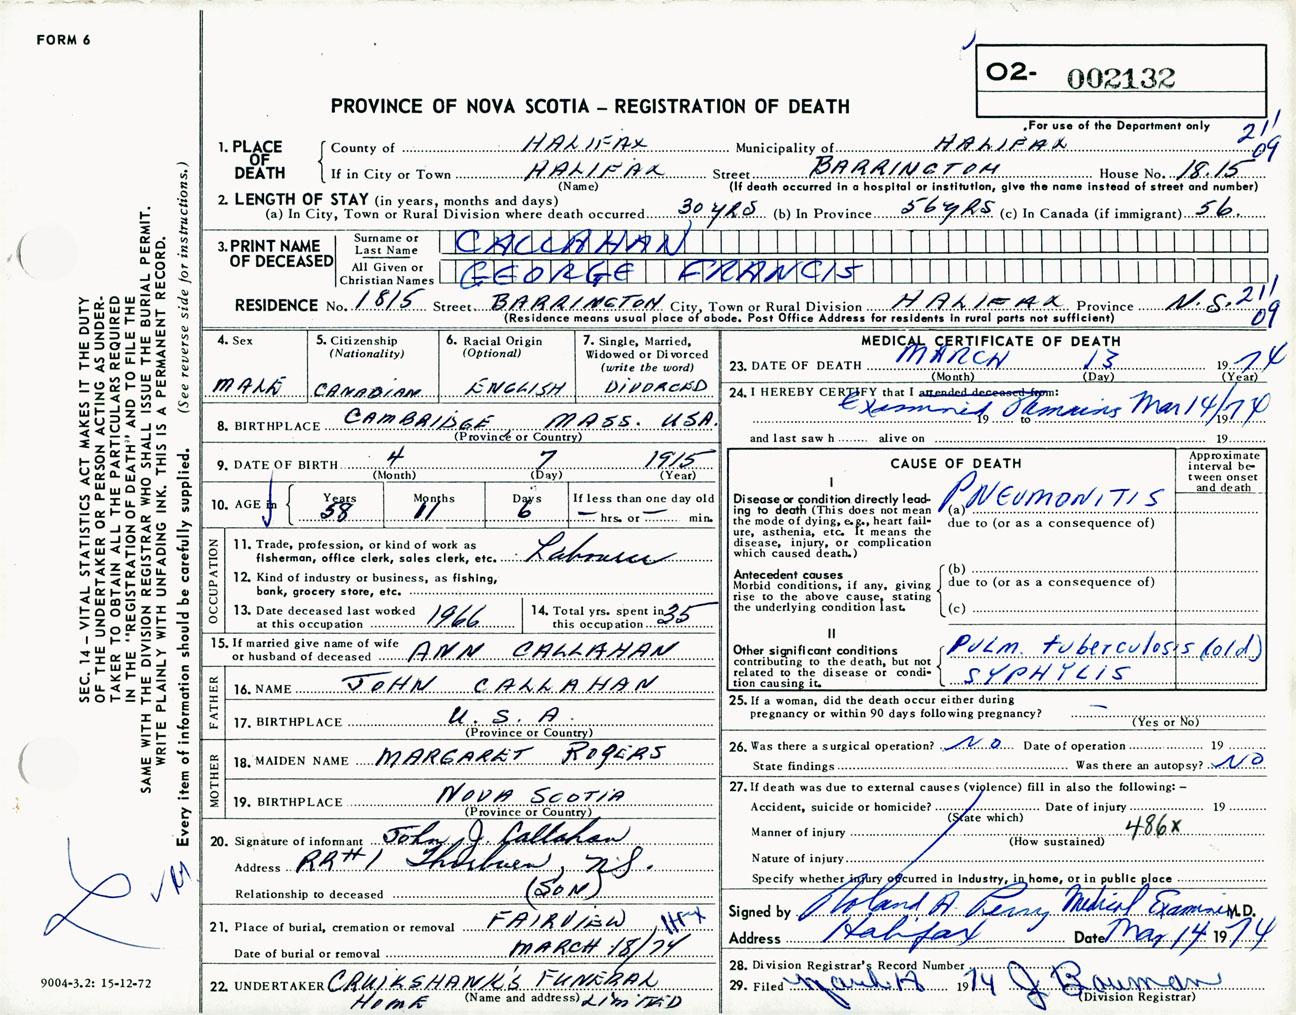 FORM 6
02- 002132
PROVINCE OF NOVA SCOTIA – REGISTRATION OF DEATH
For use of the Department only
211
09
1. PLACE OF DEATH
County of HALIFAX Municipality of HALIFAX
If in City or Town HALIFAX Street BARRINGTON House No. 18.15
(Name) (If death occurred in a hospital or institution, give the name instead of street and number)
2. LENGTH OF STAY (in years, months and days)
(a) In City, Town or Rural Division where death occurred 30 YRS (b) In Province 56 YRS (c) In Canada (if immigrant) 56.
3. PRINT NAME OF DECEASED
Surname or Last Name CALLAHAN
All Given or Christian Names GEORGE FRANCIS
RESIDENCE No. 1815 Street BARRINGTON City, Town or Rural Division HALIFAX Province N.S. 211
09
(Residence means usual place of abode. Post Office Address for residents in rural parts not sufficient)
4. Sex
MALE
5. Citizenship
(Nationality)
CANADIAN
6. Racial Origin
(Optional)
ENGLISH
7. Single, Married,
Widowed or Divorced
(write the word)
DIVORCED
8. BIRTHPLACE CAMBRIDGE MASS. USA.
(Province or Country)
9. DATE OF BIRTH 4 7 1915
(Month) (Day) (Year)
10. AGE in
Years Months Days If less than one day old
58 11 6 — hrs. or — min.
OCCUPATION
11. Trade, profession, or kind of work as
fisherman, office clerk, sales clerk, etc. Labourer
12. Kind of industry or business, as fishing,
bank, grocery store, etc.
13. Date deceased last worked
at this occupation 1966
14. Total yrs. spent in
this occupation 35
15. If married give name of wife
or husband of deceased ANN CALLAHAN
FATHER
16. NAME JOHN CALLAHAN
17. BIRTHPLACE U.S.A.
(Province or Country)
MOTHER
18. MAIDEN NAME MARGARET ROGERS
19. BIRTHPLACE NOVA SCOTIA
(Province or Country)
20. Signature of informant John J. Callahan
Address RR#1 Thorburn, N.S.
Relationship to deceased (SON)
21. Place of burial, cremation or removal FAIRVIEW Hfx
Date of burial or removal MARCH 18/74
22. UNDERTAKER CRUIKSHANK'S FUNERAL
HOME (Name and address) LIMITED
MEDICAL CERTIFICATE OF DEATH
23. DATE OF DEATH MARCH 13 1974
(Month) (Day) (Year)
24. I HEREBY CERTIFY that I attended deceased from:
Examined Remains Mar 14/74
19 to 19
and last saw h alive on 19
CAUSE OF DEATH
Approximate
interval be-
tween onset
and death
I
Disease or condition directly lead-
ing to death (This does not mean
the mode of dying, e.g., heart fail-
ure, asthenia, etc. It means the
disease, injury, or complication
which caused death.)
(a) PNEUMONITIS
due to (or as a consequence of)
Antecedent causes
Morbid conditions, if any, giving
rise to the above cause, stating
the underlying condition last.
(b)
due to (or as a consequence of)
(c)
II
Other significant conditions
contributing to the death, but not
related to the disease or condi-
tion causing it.
PULM. tuberculosis (old)
SYPHYLIS
25. If a woman, did the death occur either during
pregnancy or within 90 days following pregnancy? —
(Yes or No)
26. Was there a surgical operation? NO Date of operation 19
State findings Was there an autopsy? NO
27. If death was due to external causes (violence) fill in also the following: –
Accident, suicide or homicide? Date of injury 19
(State which)
Manner of injury 486X
(How sustained)
Nature of injury
Specify whether injury occurred in Industry, in home, or in public place
Signed by Roland A. Perry Medical Examiner M.D.
Address Halifax Date Mar 14 1974
28. Division Registrar's Record Number
29. Filed March 18 1974 J Bauman
(Division Registrar)
SEC. 14 – VITAL STATISTICS ACT MAKES IT THE DUTY
OF THE UNDERTAKER OR PERSON ACTING AS UNDER-
TAKER TO OBTAIN ALL THE PARTICULARS REQUIRED
IN THE "REGISTRATION OF DEATH" AND TO FILE THE
SAME WITH THE DIVISION REGISTRAR WHO SHALL ISSUE THE BURIAL PERMIT.
WRITE PLAINLY WITH UNFADING INK. THIS IS A PERMANENT RECORD.
Every item of information should be carefully supplied. (See reverse side for instructions.)
9004-3.2: 15-12-72